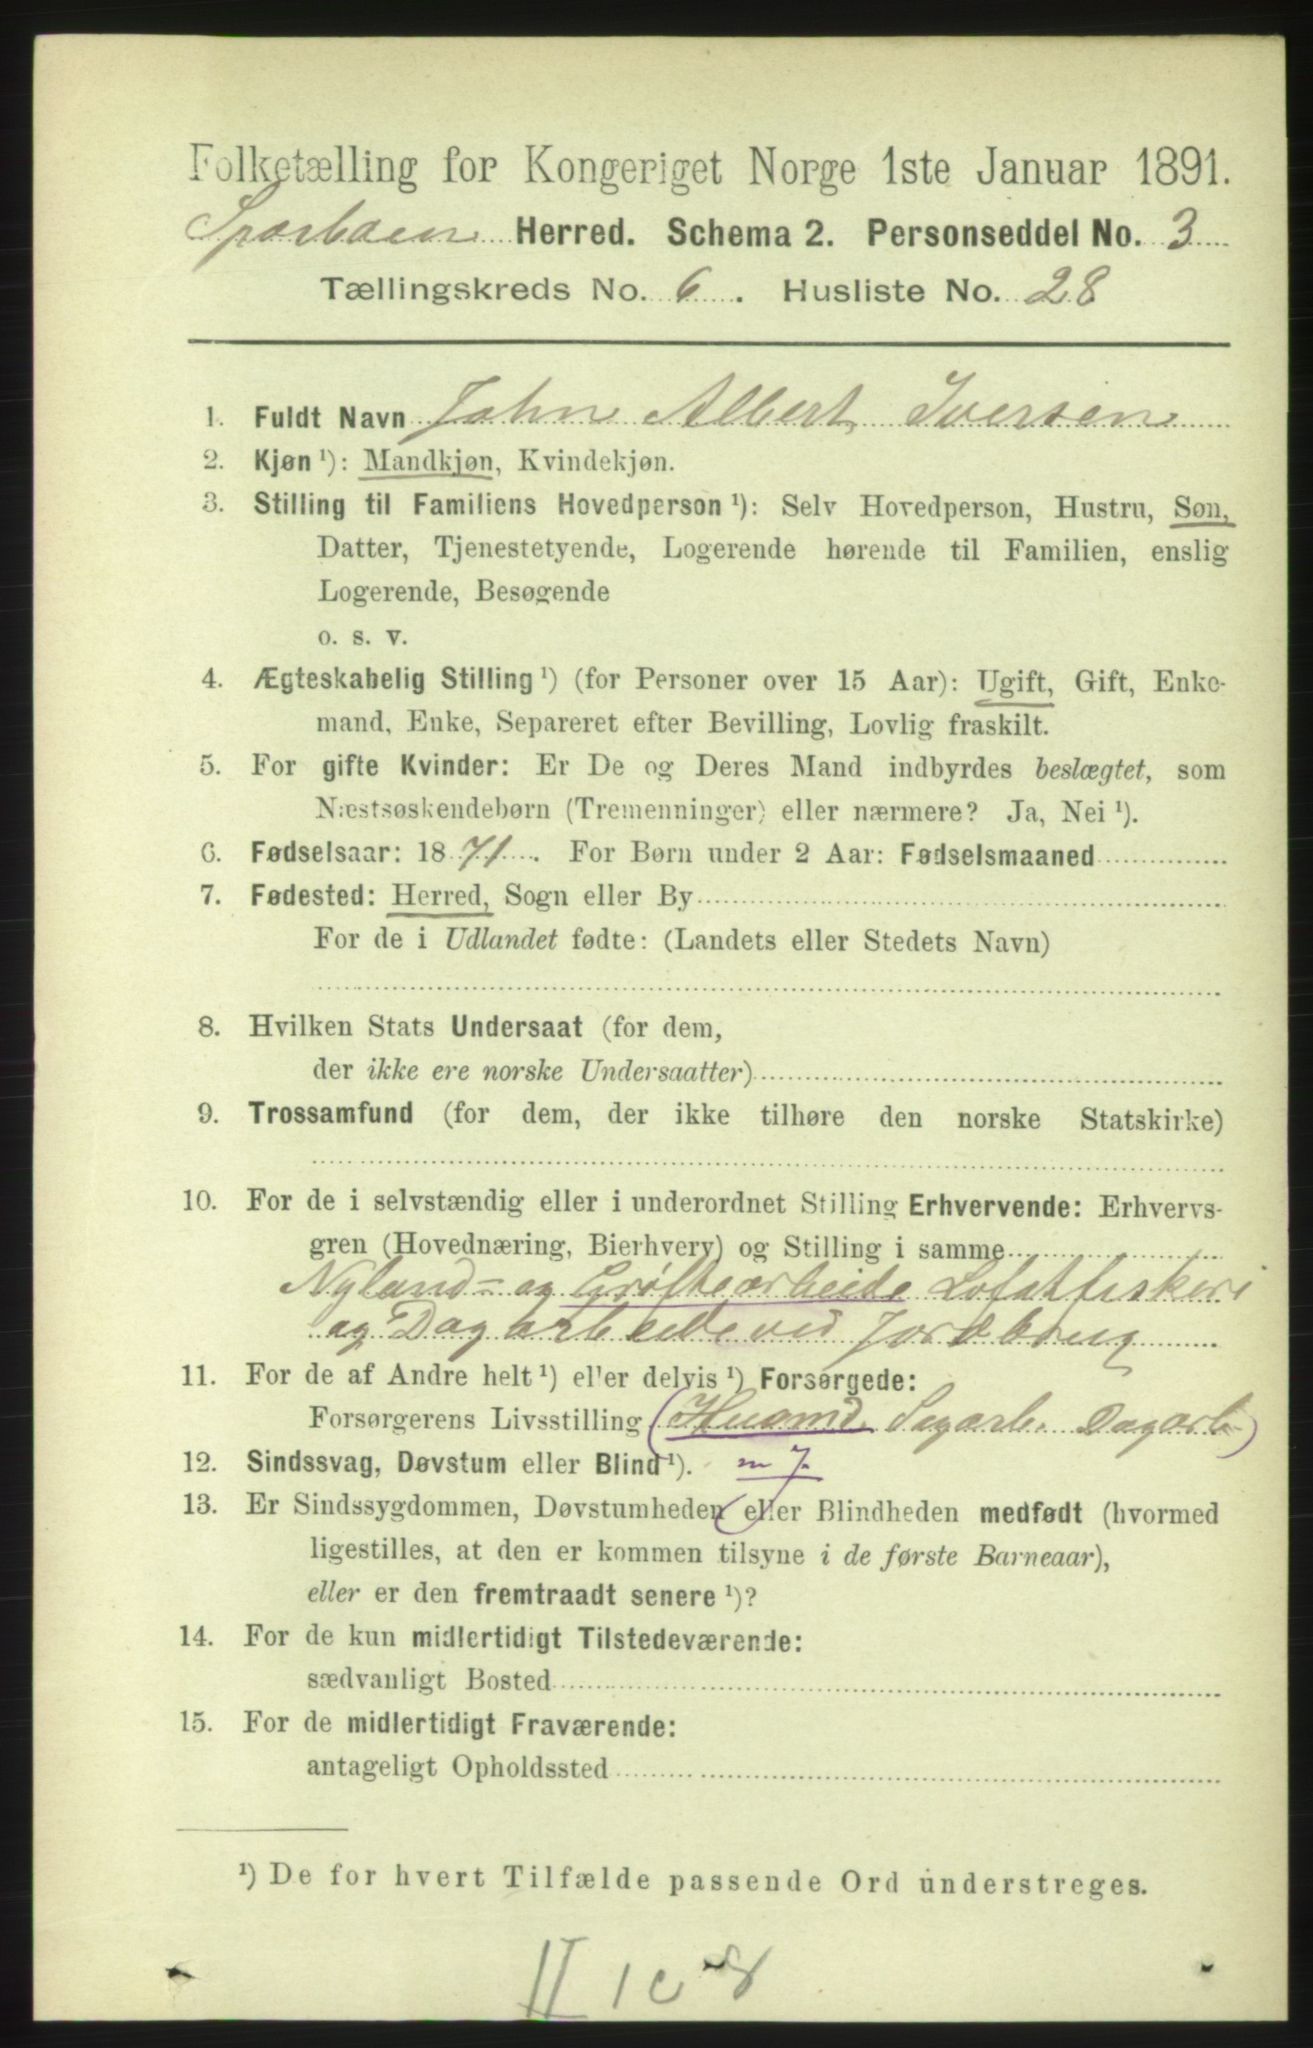 Folketælling for Kongeriget Norge 1ste Januar 1891.
Sparbuen Herred. Schema 2. Personseddel No. 3
Tællingskreds No. 6. Husliste No. 28
1. Fuldt Navn John Albert Iversen
2. Kjøn ¹): Mandkjøn, Kvindekjøn.
3. Stilling til Familiens Hovedperson ¹): Selv Hovedperson, Hustru, Søn,
Datter, Tjenestetyende, Logerende hørende til Familien, enslig
Logerende, Besøgende
o. s. v.
4. Ægteskabelig Stilling ¹) (for Personer over 15 Aar): Ugift, Gift, Enke-
mand, Enke, Separeret efter Bevilling, Lovlig fraskilt.
5. For gifte Kvinder: Er De og Deres Mand indbyrdes beslægtet, som
Næstsøskendebørn (Tremenninger) eller nærmere? Ja, Nei ¹).
6. Fødselsaar: 1871. For Børn under 2 Aar: Fødselsmaaned
7. Fødested: Herred, Sogn eller By
For de i Udlandet fødte: (Landets eller Stedets Navn)
8. Hvilken Stats Undersaat (for dem,
der ikke ere norske Undersaatter)
9. Trossamfund (for dem, der ikke tilhøre den norske Statskirke)
10. For de i selvstændig eller i underordnet Stilling Erhvervende: Erhvervs-
gren (Hovednæring, Bierhverv) og Stilling i samme
Nyland- og Grøftearbeide Lofotfiskeri
og Dagarbeide ved Jordbrug
11. For de af Andre helt ¹) el'er delvis ¹) Forsørgede:
Forsørgerens Livsstilling (Husmd. Sagarb. Dagarb)
12. Sindssvag, Døvstum eller Blind ¹). m J.
13. Er Sindssygdommen, Døvstumheden eller Blindheden medfødt (hvormed
ligestilles, at den er kommen tilsyne i de første Barneaar),
eller er den fremtraadt senere ¹)?
14. For de kun midlertidigt Tilstedeværende:
sædvanligt Bosted
15. For de midlertidigt Fraværende:
antageligt Opholdssted
¹) De for hvert Tilfælde passende Ord understreges.
II 10-8